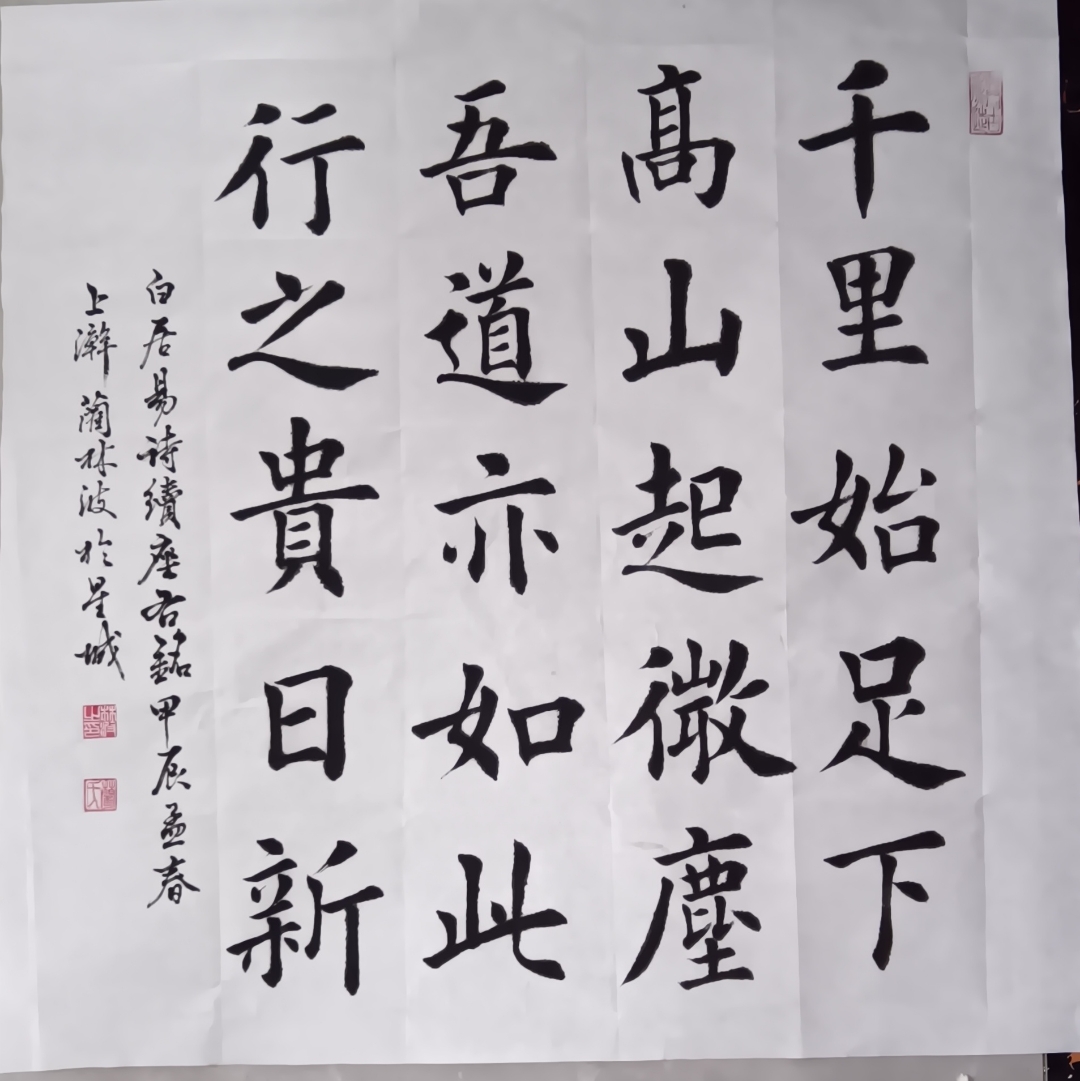 千里始足下
高山起微塵
吾道亦如此
行之貴日新
白居易詩續座右銘甲辰孟春
上澣蔺林波於星城